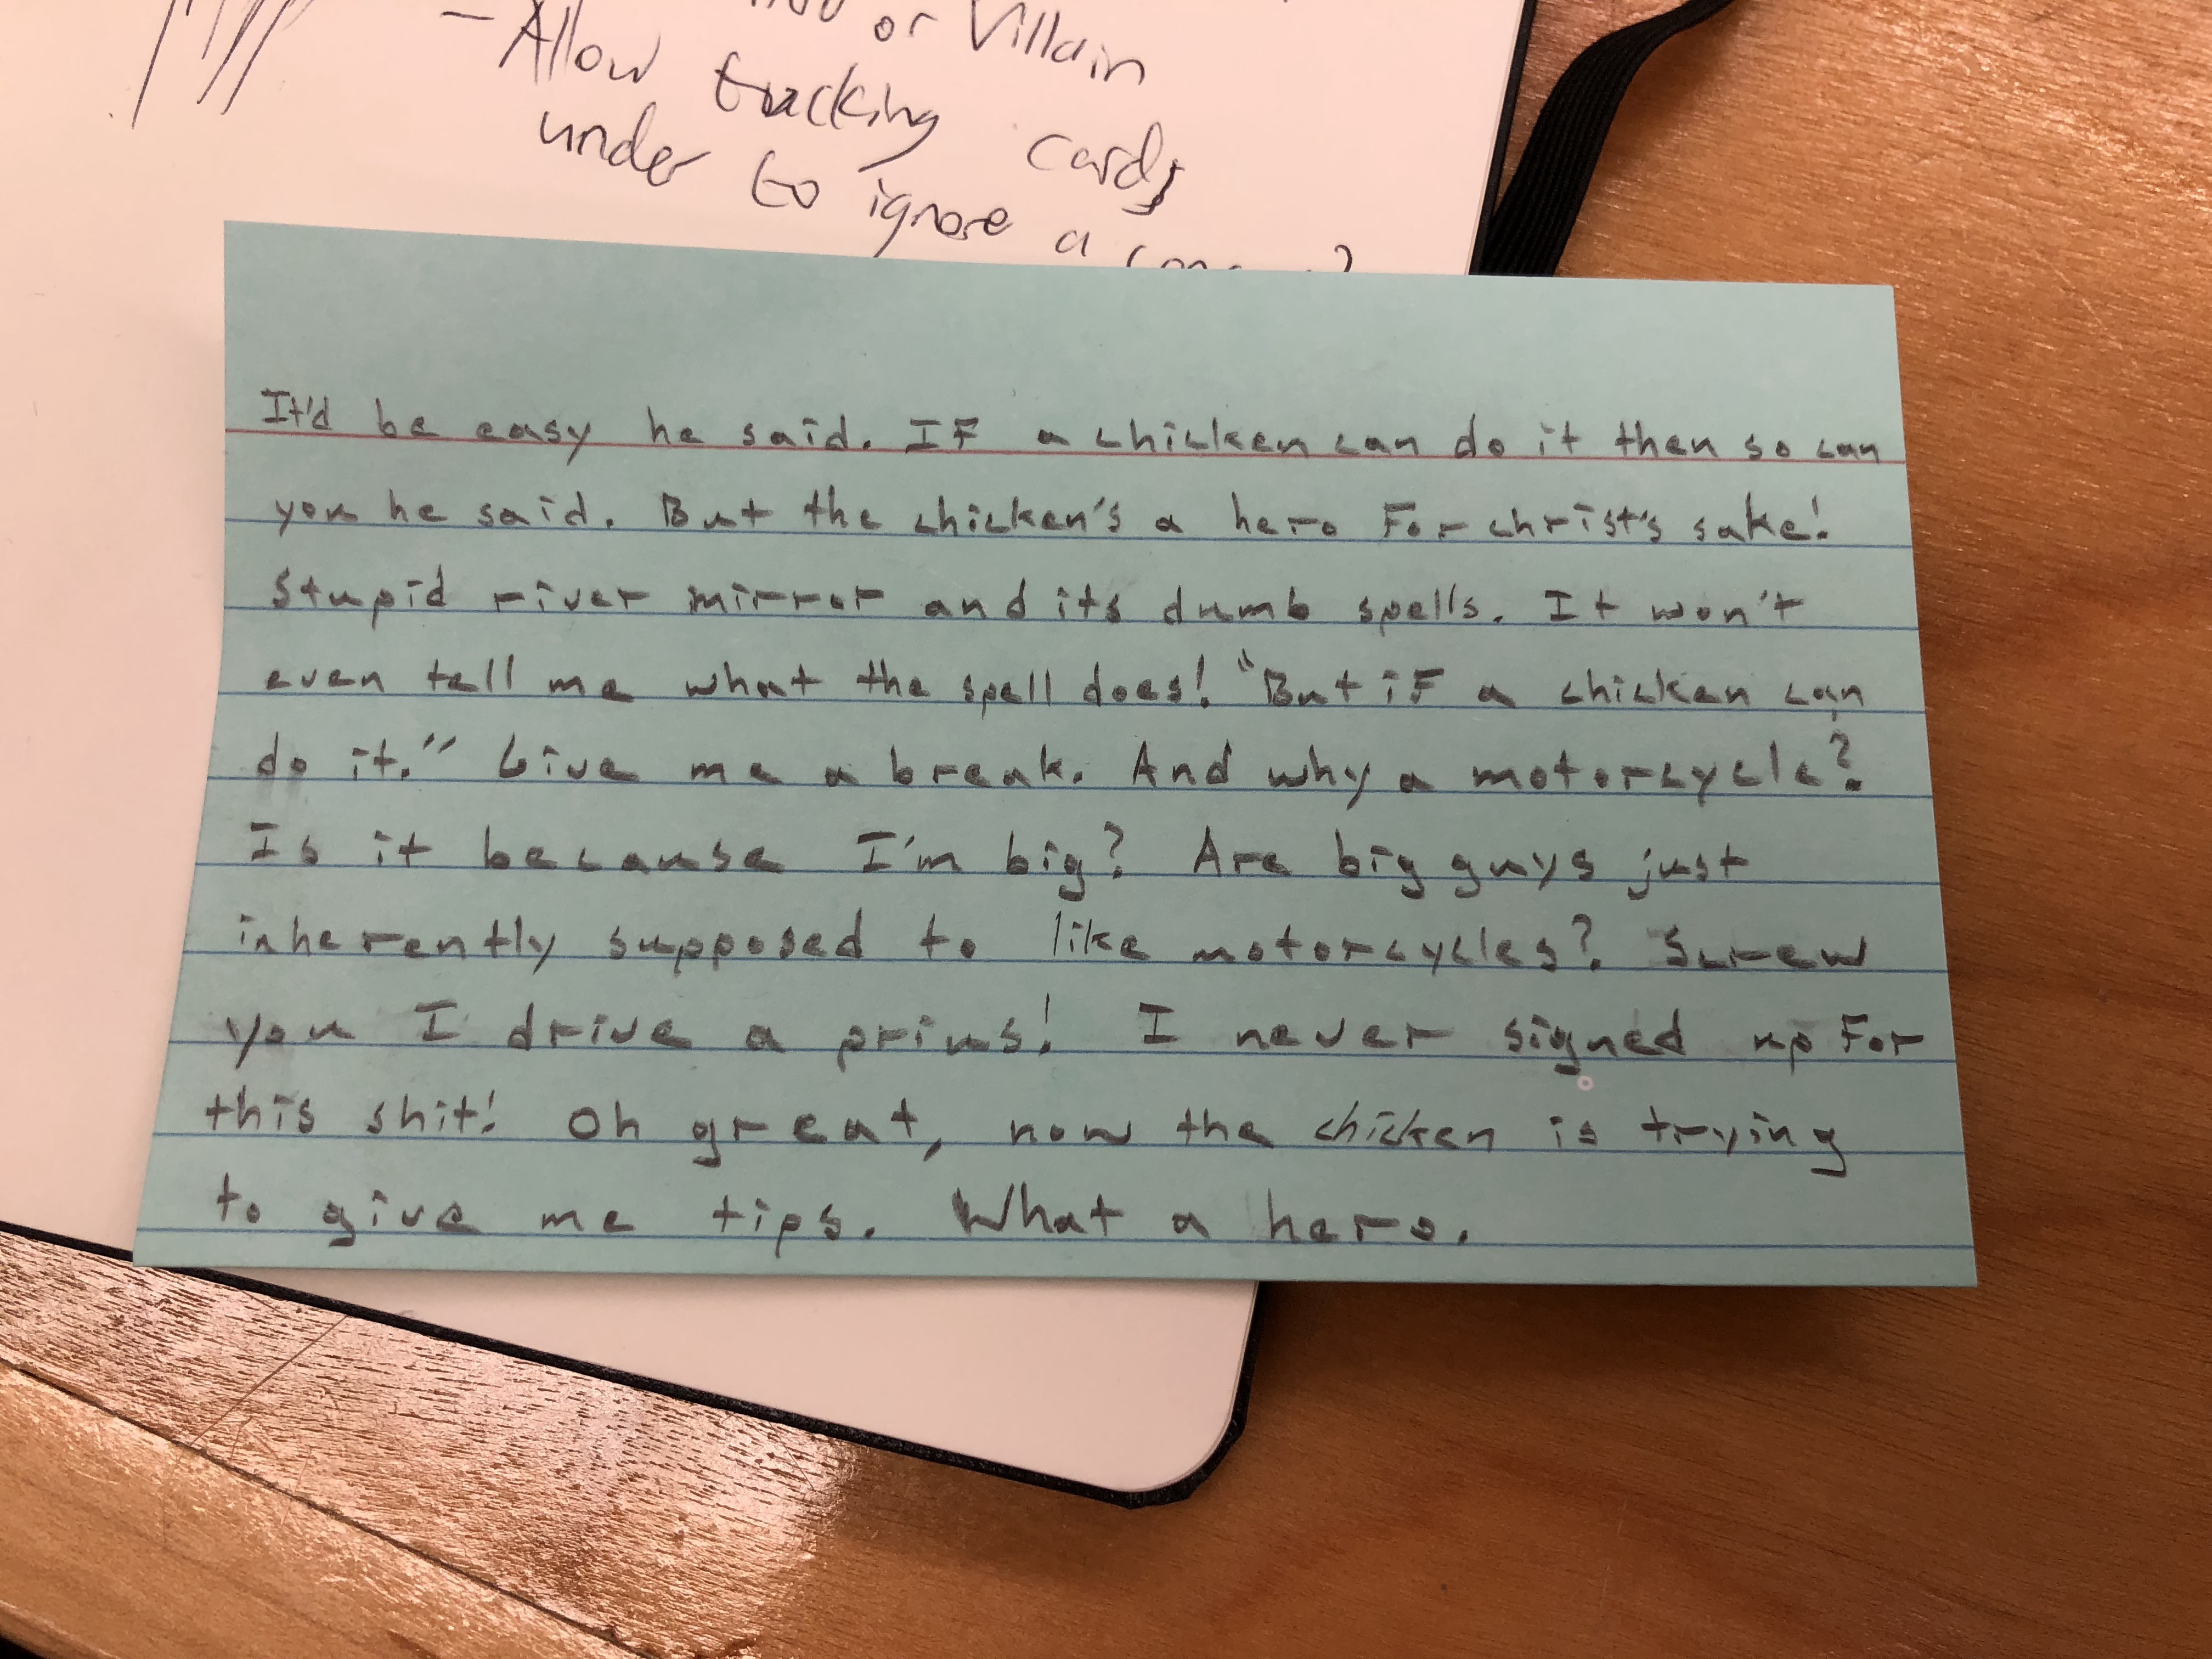 or Villain
- Allow tracking cards
under to ignore a
It'd be easy he said. IF a chicken can do it then so can
you he said. But the chicken's a hero For christ's sake!
Stupid river mirror and its dumb spells. It won't
even tell me what the spell does! "But iF a chicken can
do it." Give me a break. And why a motorcycle?
Is it because I'm big? Are big guys just
inherently supposed to like motorcycles? Screw
you I drive a prius! I never signed up For
this shit! Oh great, now the chicken is trying
to give me tips. What a hero.